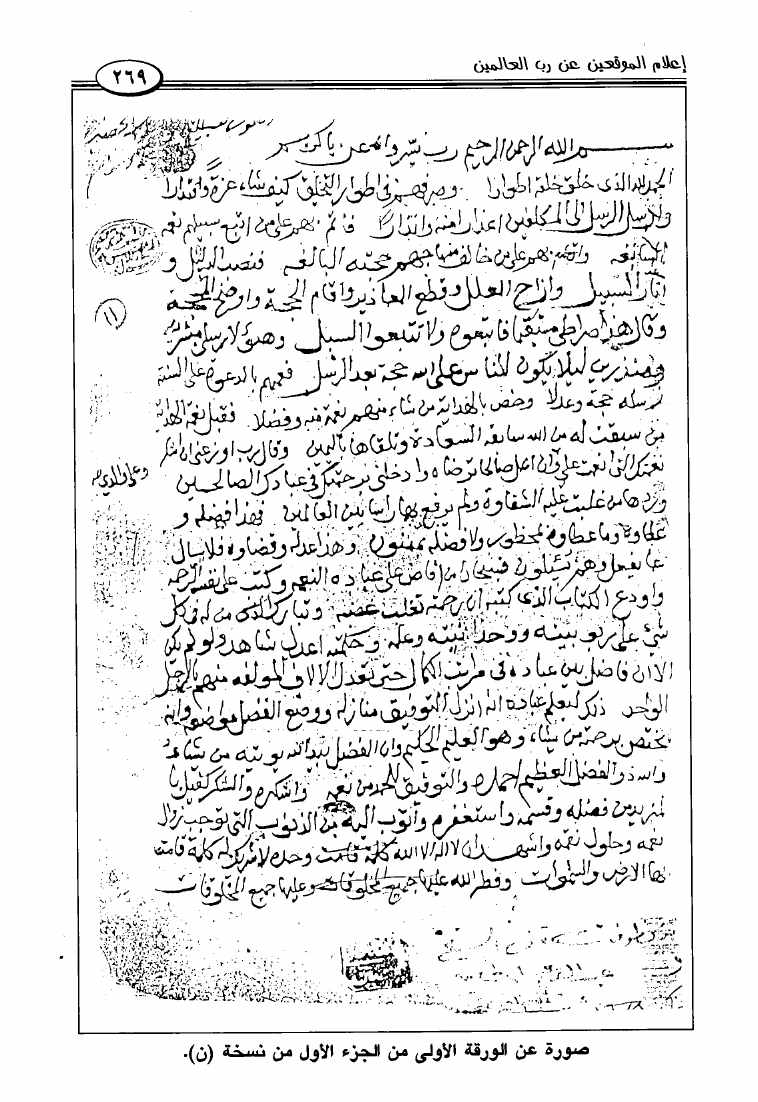 إعلام الموقعين عن رب العالمين
٢٦٩
بسم الله الرحمن الرحيم رب يسر واعن يا كريم
الحمد لله الذي خلق خلقه اطوارا وصرفهم في اطوار التخليق كيف شاء عزة واقتدارا
وارسل الرسل الى المكلفين اعذارا منه وانذارا فاتم بهم على من اتبع سبيلهم نعمته
السابغه واقام بهم على من خالف منهاجهم حجته البالغه فنصب الدليل و
انار السبيل وازاح العلل وقطع المعاذير واقام الحجة واوضح المحجة
وقال هذا صراطي مستقيما فاتبعوه ولا تتبعوا السبل وهؤلاء رسلي مبشرين
ومنذرين ليلا يكون للناس على الله حجة بعد الرسل فعمهم بالدعوة على السنة
رسله حجة وعدلا وخص بالهداية من شاء منهم نعمة منه وفضلا فقبل نعمة الهداية
من سبقت له من الله سابقة السعادة وتلقاها باليمين وقال رب اوزعني ان اشكر
نعمتك التي انعمت علي وان اعمل صالحا ترضاه وادخلني برحمتك في عبادك الصالحين
وعلى والدي
وردها من غلبت عليه الشقاوة ولم يرفع بها راسا بين العالمين فهذا فضله و
عطاؤه وما عطاؤه بمحظور ولا فضله بممنون وهذا عدله وقضاؤه فلا يسال
عما يفعل وهم يسئلون فسبحان من افاض على عباده النعم وكتب على نفسه الرحمة
واودع الكتاب الذي كتبه ان رحمته تغلب غضبه وتبارك الذي من له في كل
شيء على ربوبيته ووحدانيته وعلمه وحكمته اعدل شاهد ولو لم يكن
الا ان فاضل بين عباده في مراتب الكمال حتى تعدل الالاف المؤلفة منهم بالرجل
الواحد ذلك ليعلم عباده انه انزل التوفيق منازله ووضع الفضل مواضعه وانه
يختص برحمته من يشاء وهو العليم الحكيم وان الفضل بيد الله يؤتيه من يشاء
والله ذو الفضل العظيم احمده والتوفيق للحمد من نعمه واشكره والشكر كفيل با
لمزيد من فضله وقسمه واستغفره واتوب اليه من الذنوب التي توجب زوال
نعمه وحلول نقمه واشهد ان لا اله الا الله وحده لا شريك له كلمة قامت
بها الارض والسموات وفطر الله عليها جميع المخلوقات
صورة عن الورقة الأولى من الجزء الأول من نسخة (ن).